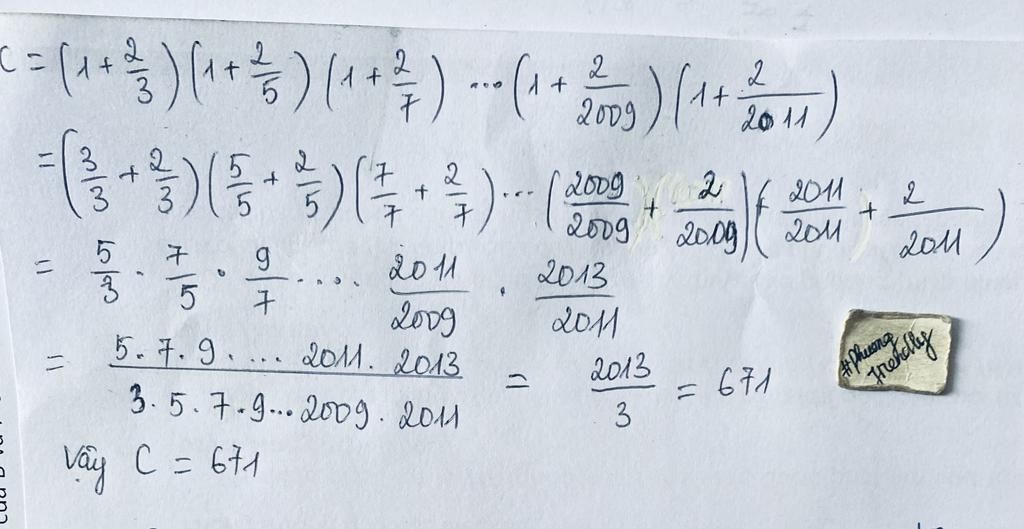 C = (1 + 2/3)(1 + 2/5)(1 + 2/7) ... (1 + 2/2009)(1 + 2/2011)
= (3/3 + 2/3)(5/5 + 2/5)(7/7 + 2/7) ... (2009/2009 + 2/2009)(2011/2011 + 2/2011)
= 5/3 . 7/5 . 9/7 .... 2011/2009 . 2013/2011
= 5.7.9. ... 2011. 2013 / 3.5.7.9...2009.2011 = 2013/3 = 671
Vậy C = 671